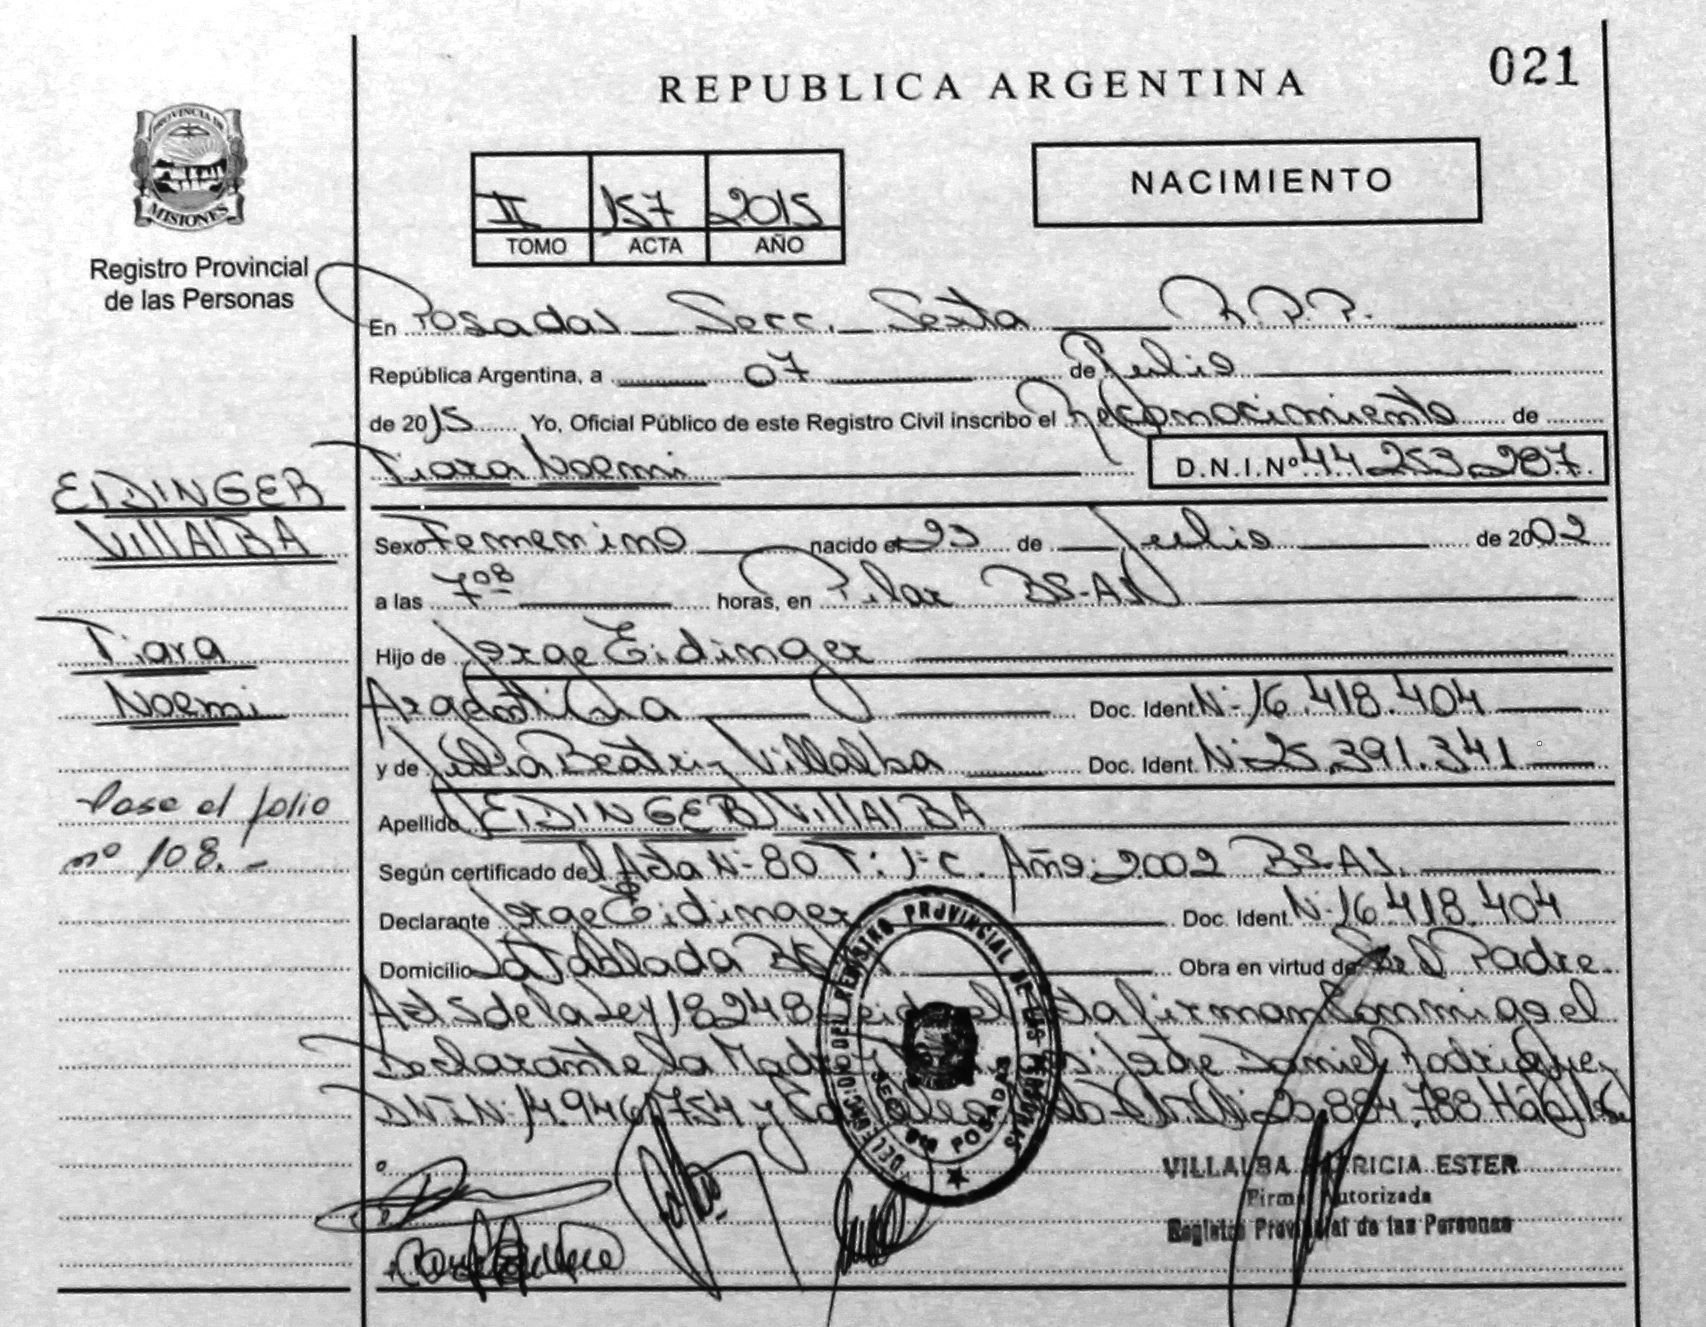 021
REPUBLICA ARGENTINA
PROVINCIA DE
MISIONES
Registro Provincial
de las Personas
NACIMIENTO
II 157 2015
TOMO ACTA AÑO
En Posadas Secc. Sexta R.P.P.
República Argentina, a 07 de Julio
de 2015 Yo, Oficial Público de este Registro Civil inscribo el Reconocimiento de
Tiara Noemi D.N.I.Nº 44.253.287.
EIDINGER
VILLALBA
Tiara
Noemi
Pase el folio
nº 108.-
Sexo Femenino nacido el 23 de Julio de 2002
a las 7 08 horas, en Pilar BS-AS
Hijo de Jorge Eidinger
Argentina Doc. Ident. Nº 16.418.404
y de Julia Beatriz Villalba Doc. Ident. Nº 25.391.341
Apellido EIDINGER VILLALBA
Según certificado del Acta Nº 80 T: 1º C. Año: 2002 BS-AS.
Declarante Jorge Eidinger Doc. Ident. Nº 16.418.404
Domicilio La Tablada Obra en virtud de Ser el Padre
Art 5 de la Ley 18248 el firman conmigo el
Declarante la Madre y Daniel Rodriguez
DNI Nº 14.946.754 y Nº 20.884.788 Hábiles
DELEGACION DEL REGISTRO PROVINCIAL DE LAS PERSONAS
SECC 6ta POSADAS
VILLALBA PATRICIA ESTER
Firma Autorizada
Registro Provincial de las Personas